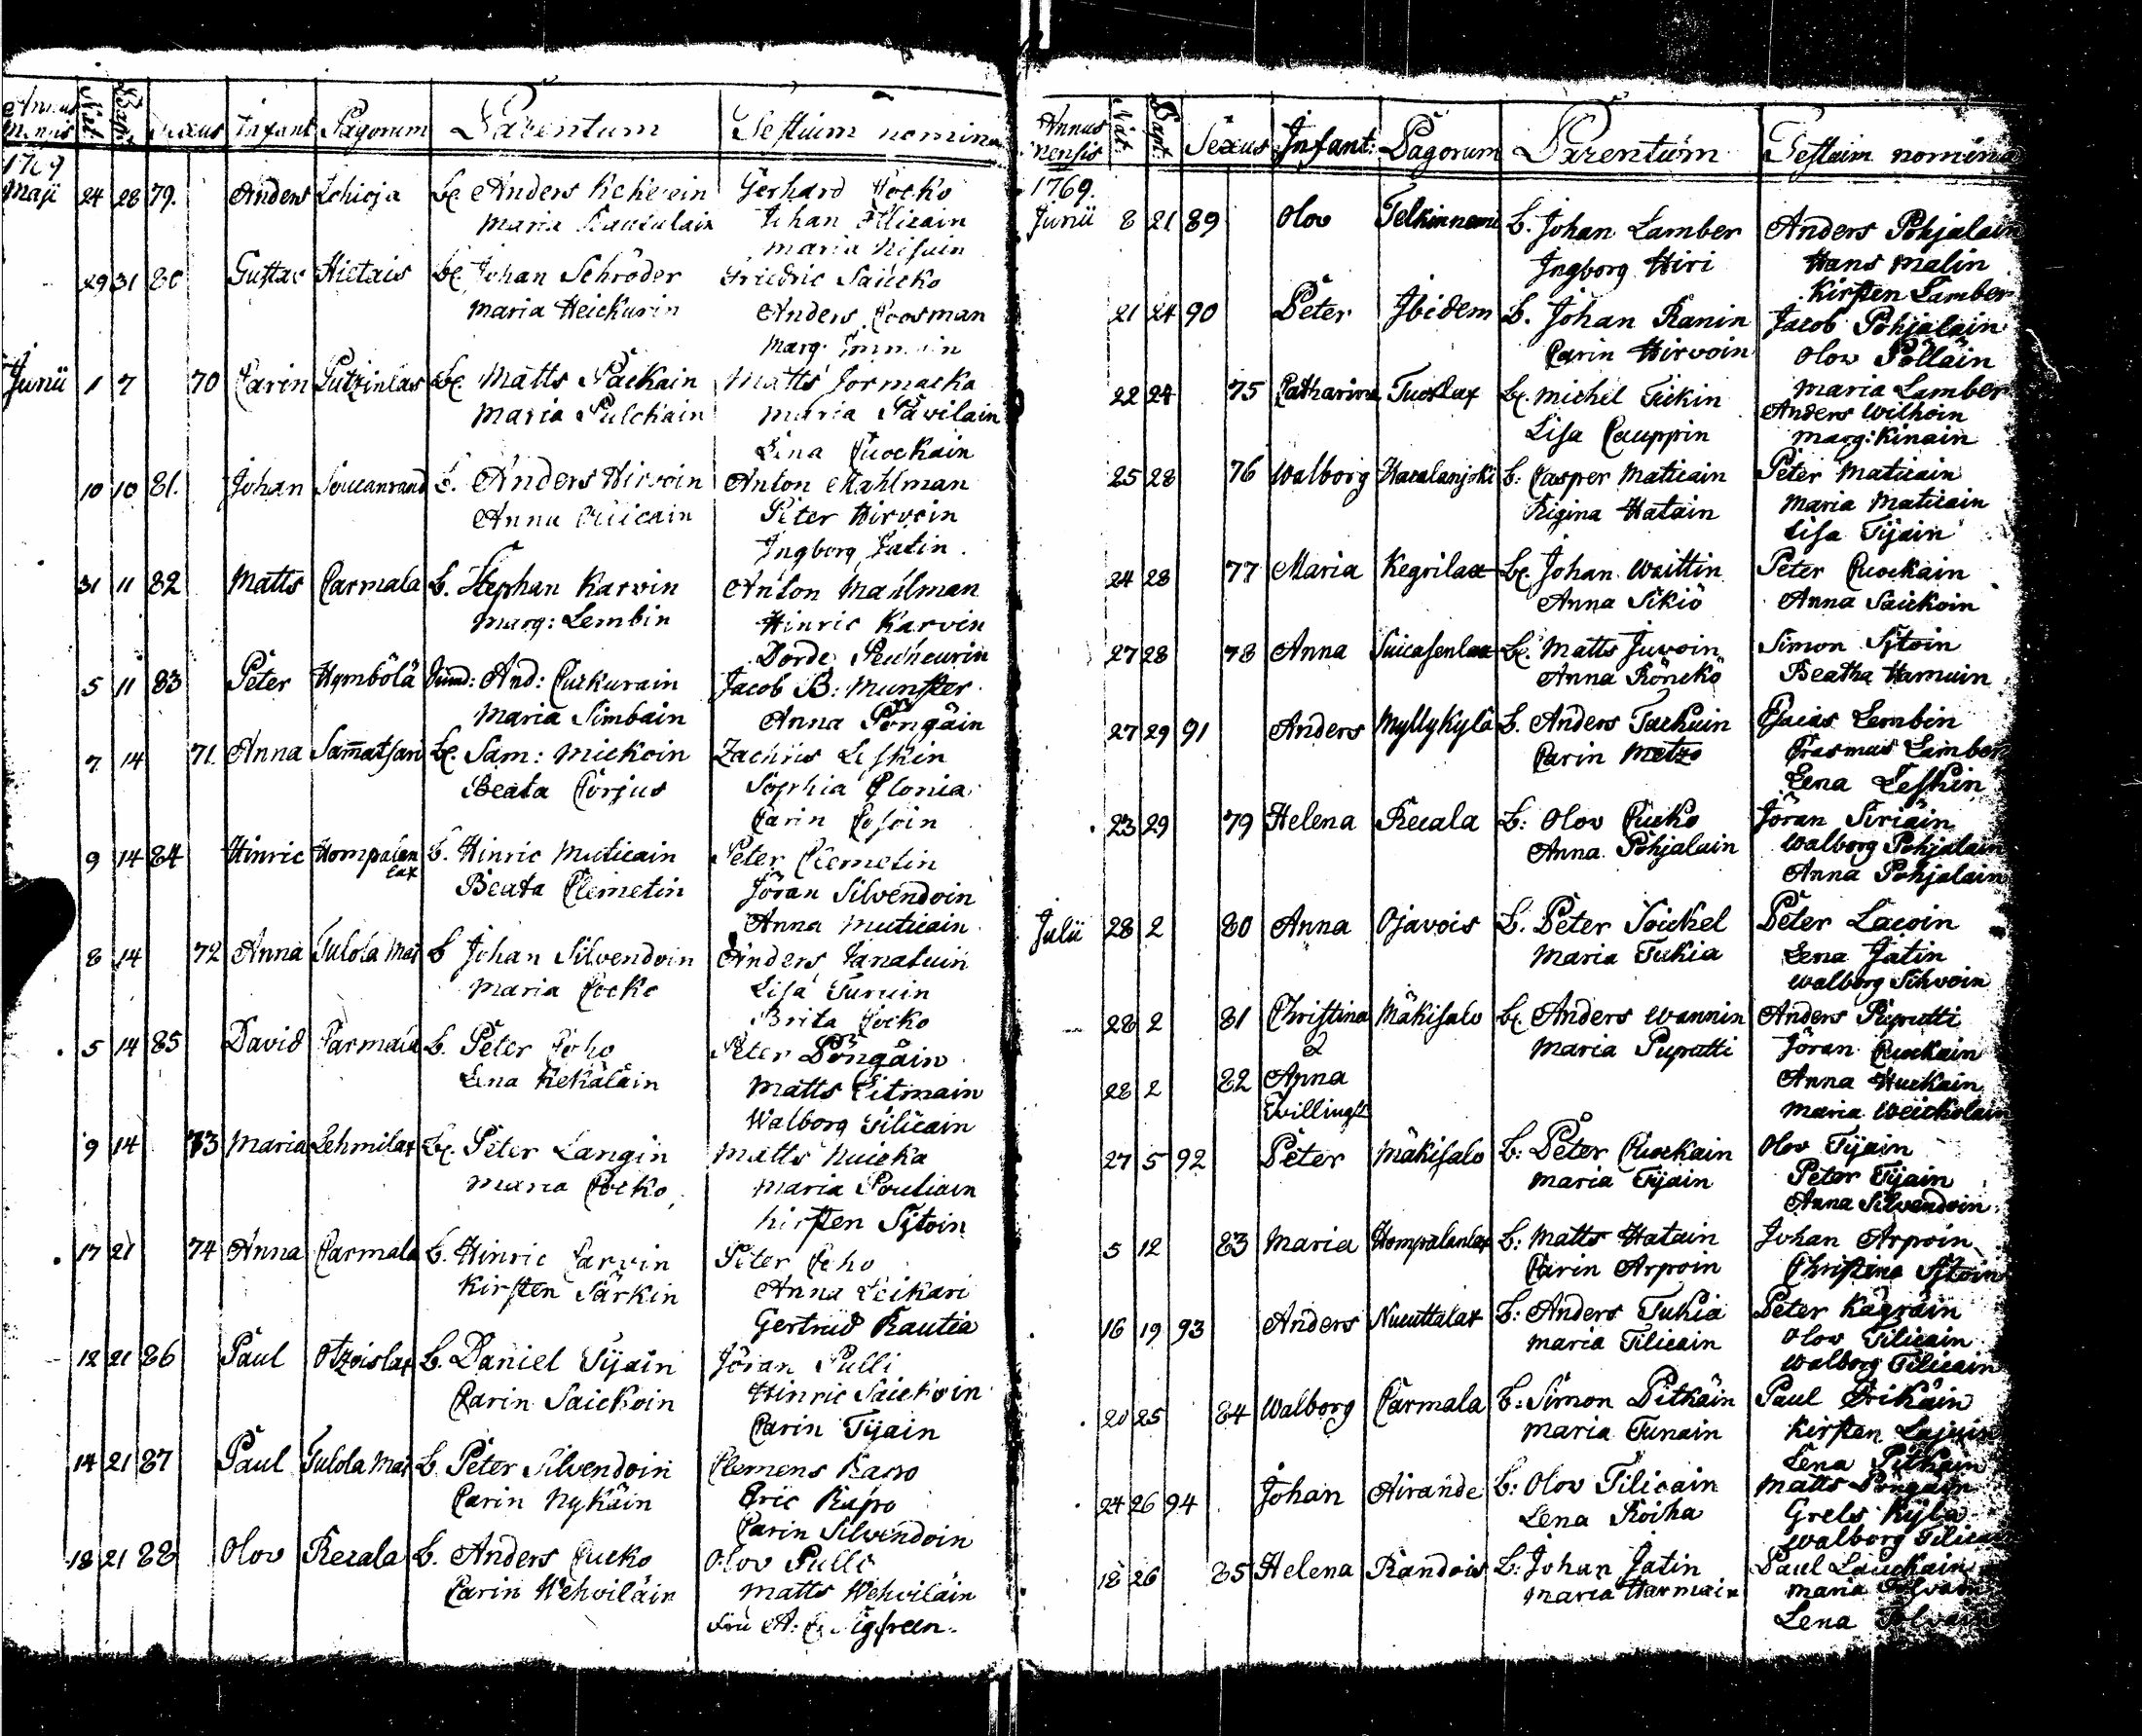 Annus Mensis Nat: Bapt: Sexus Infant Pagorum Parentum Testium nomina
1769
Maji 24 28 79. Anders Lehioja Lc. Anders Gerhard Cocko
Maria Johan
Maria
29 31 80 Gustav Hietais Lc. Johan Schröder Friedric Saucko
Maria Heickurin Anders Roosman
Marg:
Junii 1 7 70 Carin Putzinlax Lc. Matts Packain Matts Jormacka
Maria Pulckain Maria Pavilain
Lina Cuockain
10 10 81. Johan L. Anders Hirvoin Anton Mahlman
Anna Peter Hirvoin
Ingborg Jatin
31 11 82 Matts Carmala L. Stephan Karvin Anton Mahlman
Marg: Lembin Hinric Karvin
Dorde
5 11 83 Peter Hymbölä Jnnd: And: Cuckurain Jacob B: Munster
Maria Simbain Anna Pöngäin
7 14 71. Anna Sam̄atsari Lc. Sam: Mickoin Zachris Leskin
Beata Corjus Sophia Clonia
Carin Cosoin
9 14 84 Hinric Hompalan L. Hinric Muticain Peter Clemetin
lax Beata Clemetin Jöran Silvendoin
Anna Muticain
8 14 72 Anna Tulola Mat L Johan Silvendoin Anders Janatuin
Maria Cocko Lisa Turuin
Brita Cocko
5 14 85 David Carmala L. Peter Coho Peter Pöngäin
Lena Kekäläin Matts Pitmain
Walborg Tilicain
9 14 73 Maria Lehmilax Lc. Peter Langin Matts Nuicka
Maria Cocko Maria Pouliain
Kirsten Sjtoin
17 21 74 Anna Carmala L. Hinric Carvin Peter Coho
Kirsten Särkin Anna Leikari
Gertrud Rautia
12 21 86 Paul Otzoislax L. Daniel Tijain Jöran Pulli
Carin Saickoin Hinric Saickoin
Carin Tijain
14 21 87 Paul Tulola Mat L. Peter Silvendoin Clemens Karro
Carin Nykäin Eric Rapo
Carin Silvendoin
18 21 88 Olov Recala L. Anders Cucko Olov Pulli
Carin Wehviläin Matts Wehviläin
Fru A: C: Sigfreen
Annus mensis Nat: Bapt: Sexus Infant: Pagorum Parentum Testium nomina
1769.
Junii 8 21 89 Olov Telkinnemi L. Johan Lamber Anders Pohjalain
Ingborg Hiri Hans Malin
Kirsten Lamber
21 24 90 Peter Ibidem L. Johan Ranin Jacob Pohjalain
Carin Hirvoin Olov Pölläin
Maria Lamber
22 24 75 Catharina Tuoslax Lc. Michel Tickin Anders Wilhoin
Lisa Cauppin Marg: Kinain
25 28 76 Walborg Havalanjoki L: Casper Maticain Peter Maticain
Rigina Hatain Maria Maticain
Lisa Tijain
24 28 77 Maria Kegrilax Lc. Johan Waittin Peter Cuockain
Anna Sikiö Anna Saickoin
27 28 78 Anna Suicasenlax Lc. Matts Juvoin Simon Sjtoin
Anna Röncko Beatha Hamuin
27 29 91 Anders Myllykylä L. Anders Tackuin Esaias Lembin
Carin Metzo Erasmus Lamber
Lena Leskin
23 29 79 Helena Recala L: Olov Cucko Jöran Siriäin
Anna Pohjalain Walborg Pohjalain
Anna Pohjalain
Julii 28 2 80 Anna Ojavois L. Peter Soickel Peter Lacoin
Maria Tukia Lena Jatin
Walborg Sihvoin
28 2 81 Christina Mäkisalo Lc. Anders Wannin Anders Puputti
& Maria Puputti Jöran Cuockain
28 2 82 Anna Anna Huckain
Twillingr Maria Weickolain
27 5 92 Peter Mäkisalo L: Peter Cuockain Olov Tijain
Maria Tijain Peter Tijain
Anna Silvendoin
5 12 83 Maria Hompalanlax L: Matts Hatain Johan Arpoin
Carin Arpoin Christina Sjtoin
16 19 93 Anders Nuuttalax L: Anders Tukia Peter Kägräin
Maria Tilicain Olov Tilicain
Walborg Tilicain
20 25 84 Walborg Carmala L: Simon Pitkäin Paul Erikäin
Maria Tunain Kirsten
Lena Pitkäin
24 26 94 Johan Airande L: Olov Tilicain Matts Pöngäin
Lena Roiha Grels Kylä
Walborg
18 26 85 Helena Randois L: Johan Jatin Paul Lauckain
Maria Harmain Maria
Lena